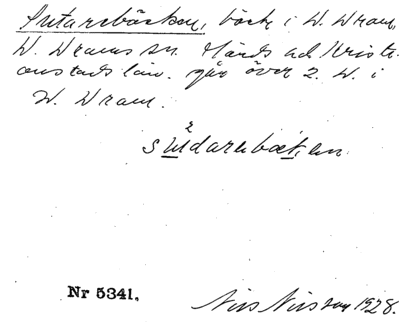 Sutarebäcken, bäck i V. Vram,
V. Vrams sn. Gärds hd. Kristi-
anstads län. går över 2. V. i
V. Vram.
sudarebäkan.
Nr 5341.
Nils Nilsson 1928.